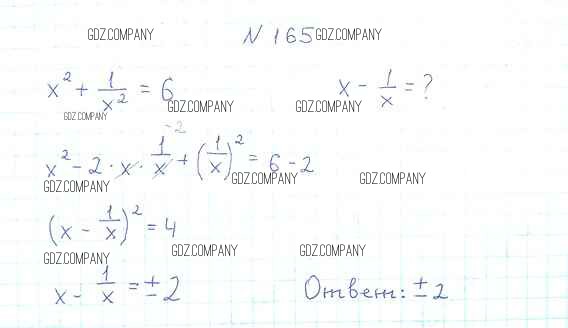 GDZ.COMPANY № 165 GDZ.COMPANY
x² + 1/x² = 6 x - 1/x = ?
GDZ.COMPANY GDZ.COMPANY GDZ.COMPANY
-2
x² - 2 · x · 1/x + (1/x)² = 6 - 2
GDZ.COMPANY GDZ.COMPANY GDZ.COMPANY
(x - 1/x)² = 4
GDZ.COMPANY GDZ.COMPANY GDZ.COMPANY
x - 1/x = ±2 Ответ: ±2